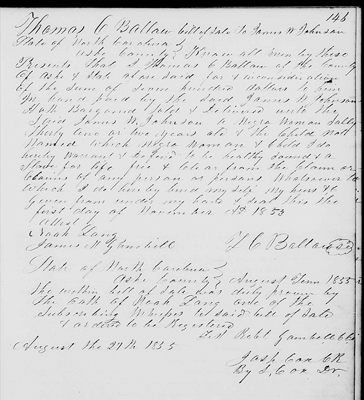 146
Thomas C Ballaw bill of sale to James W Johnson
State of North Carolina
Ashe County Know all men by these
Presents that I Thomas C Ballaw of the County
of Ashe & State afore said for & in consideration
of the Sum of Seven hundred dollars to him
in hand paid by the said James W Johnson
Hath Bargained Sold & delivered unto the
Said James W. Johnson a Negro Woman Sally
thirty one or two years old & the Child not
Named which Negro Woman & Child I do
hereby warrant & defend to be healthy sound & a
Slave for life free & clear from the claim or
Claims of any person or persons Whatsoever to
which I do hereby bind my self my heirs &c
Given from under my hand & seal this the
first day of November AD 1853
Attest
Noah Long
James W Glenchell T C Ballaw
State of North Carolina
Ashe County August Term 1855
the within bill of Sale was duly proven by
the Oath of Noah Long one of the
Subscribing Witnesses to said bill of Sale
& ordered to be Registered
Test Robt Gambill
August the 27th 1855
Jasp. Cox CR
By J. Cox Dr.